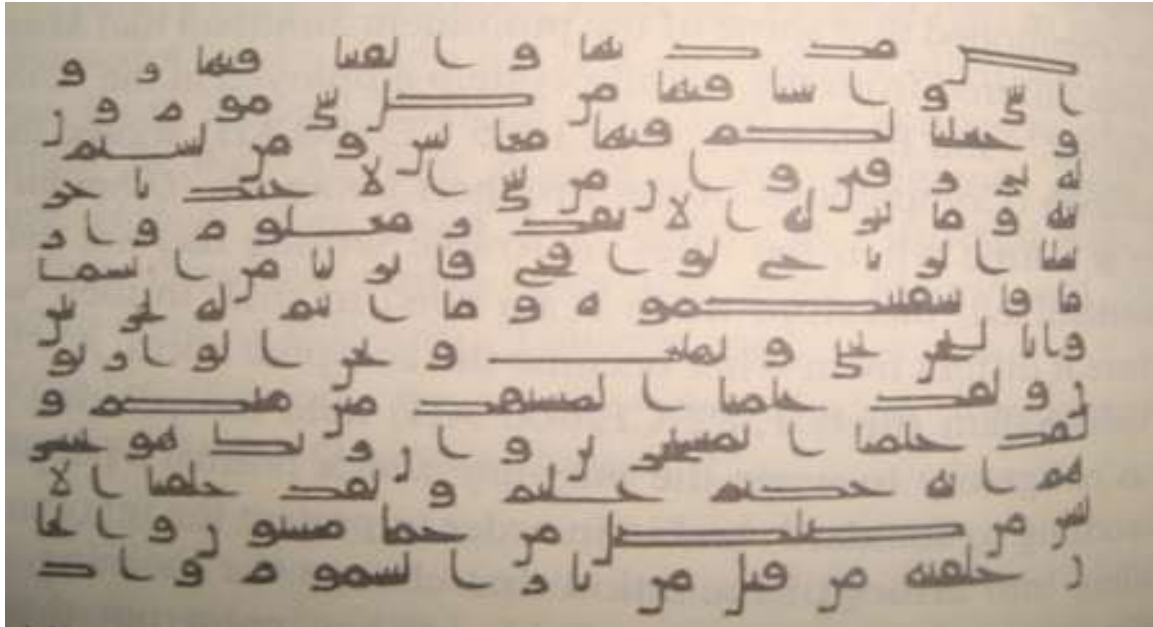 رض مددنها والقينا فيها رو
اسي وانبتنا فيها من كل شي موزون
وجعلنا لكم فيها معيش ومن لستم
له برزقين وان من شي الا عندنا خز
ئنه وما ننزله الا بقدر معلوم وار
سلنا الريح لواقح فانزلنا من السما
ما فاسقينكموه وما انتم له بخزنين
وانا لنحن نحي ونميت ونحن الوارثو
ن ولقد علمنا المستقدمين منكم و
لقد علمنا المستخرين وان ربك هو يحشر
هم انه حكيم عليم ولقد خلقنا الا
نسن من صلصل من حما مسنون والجا
ن خلقنه من قبل من نار السموم واذ